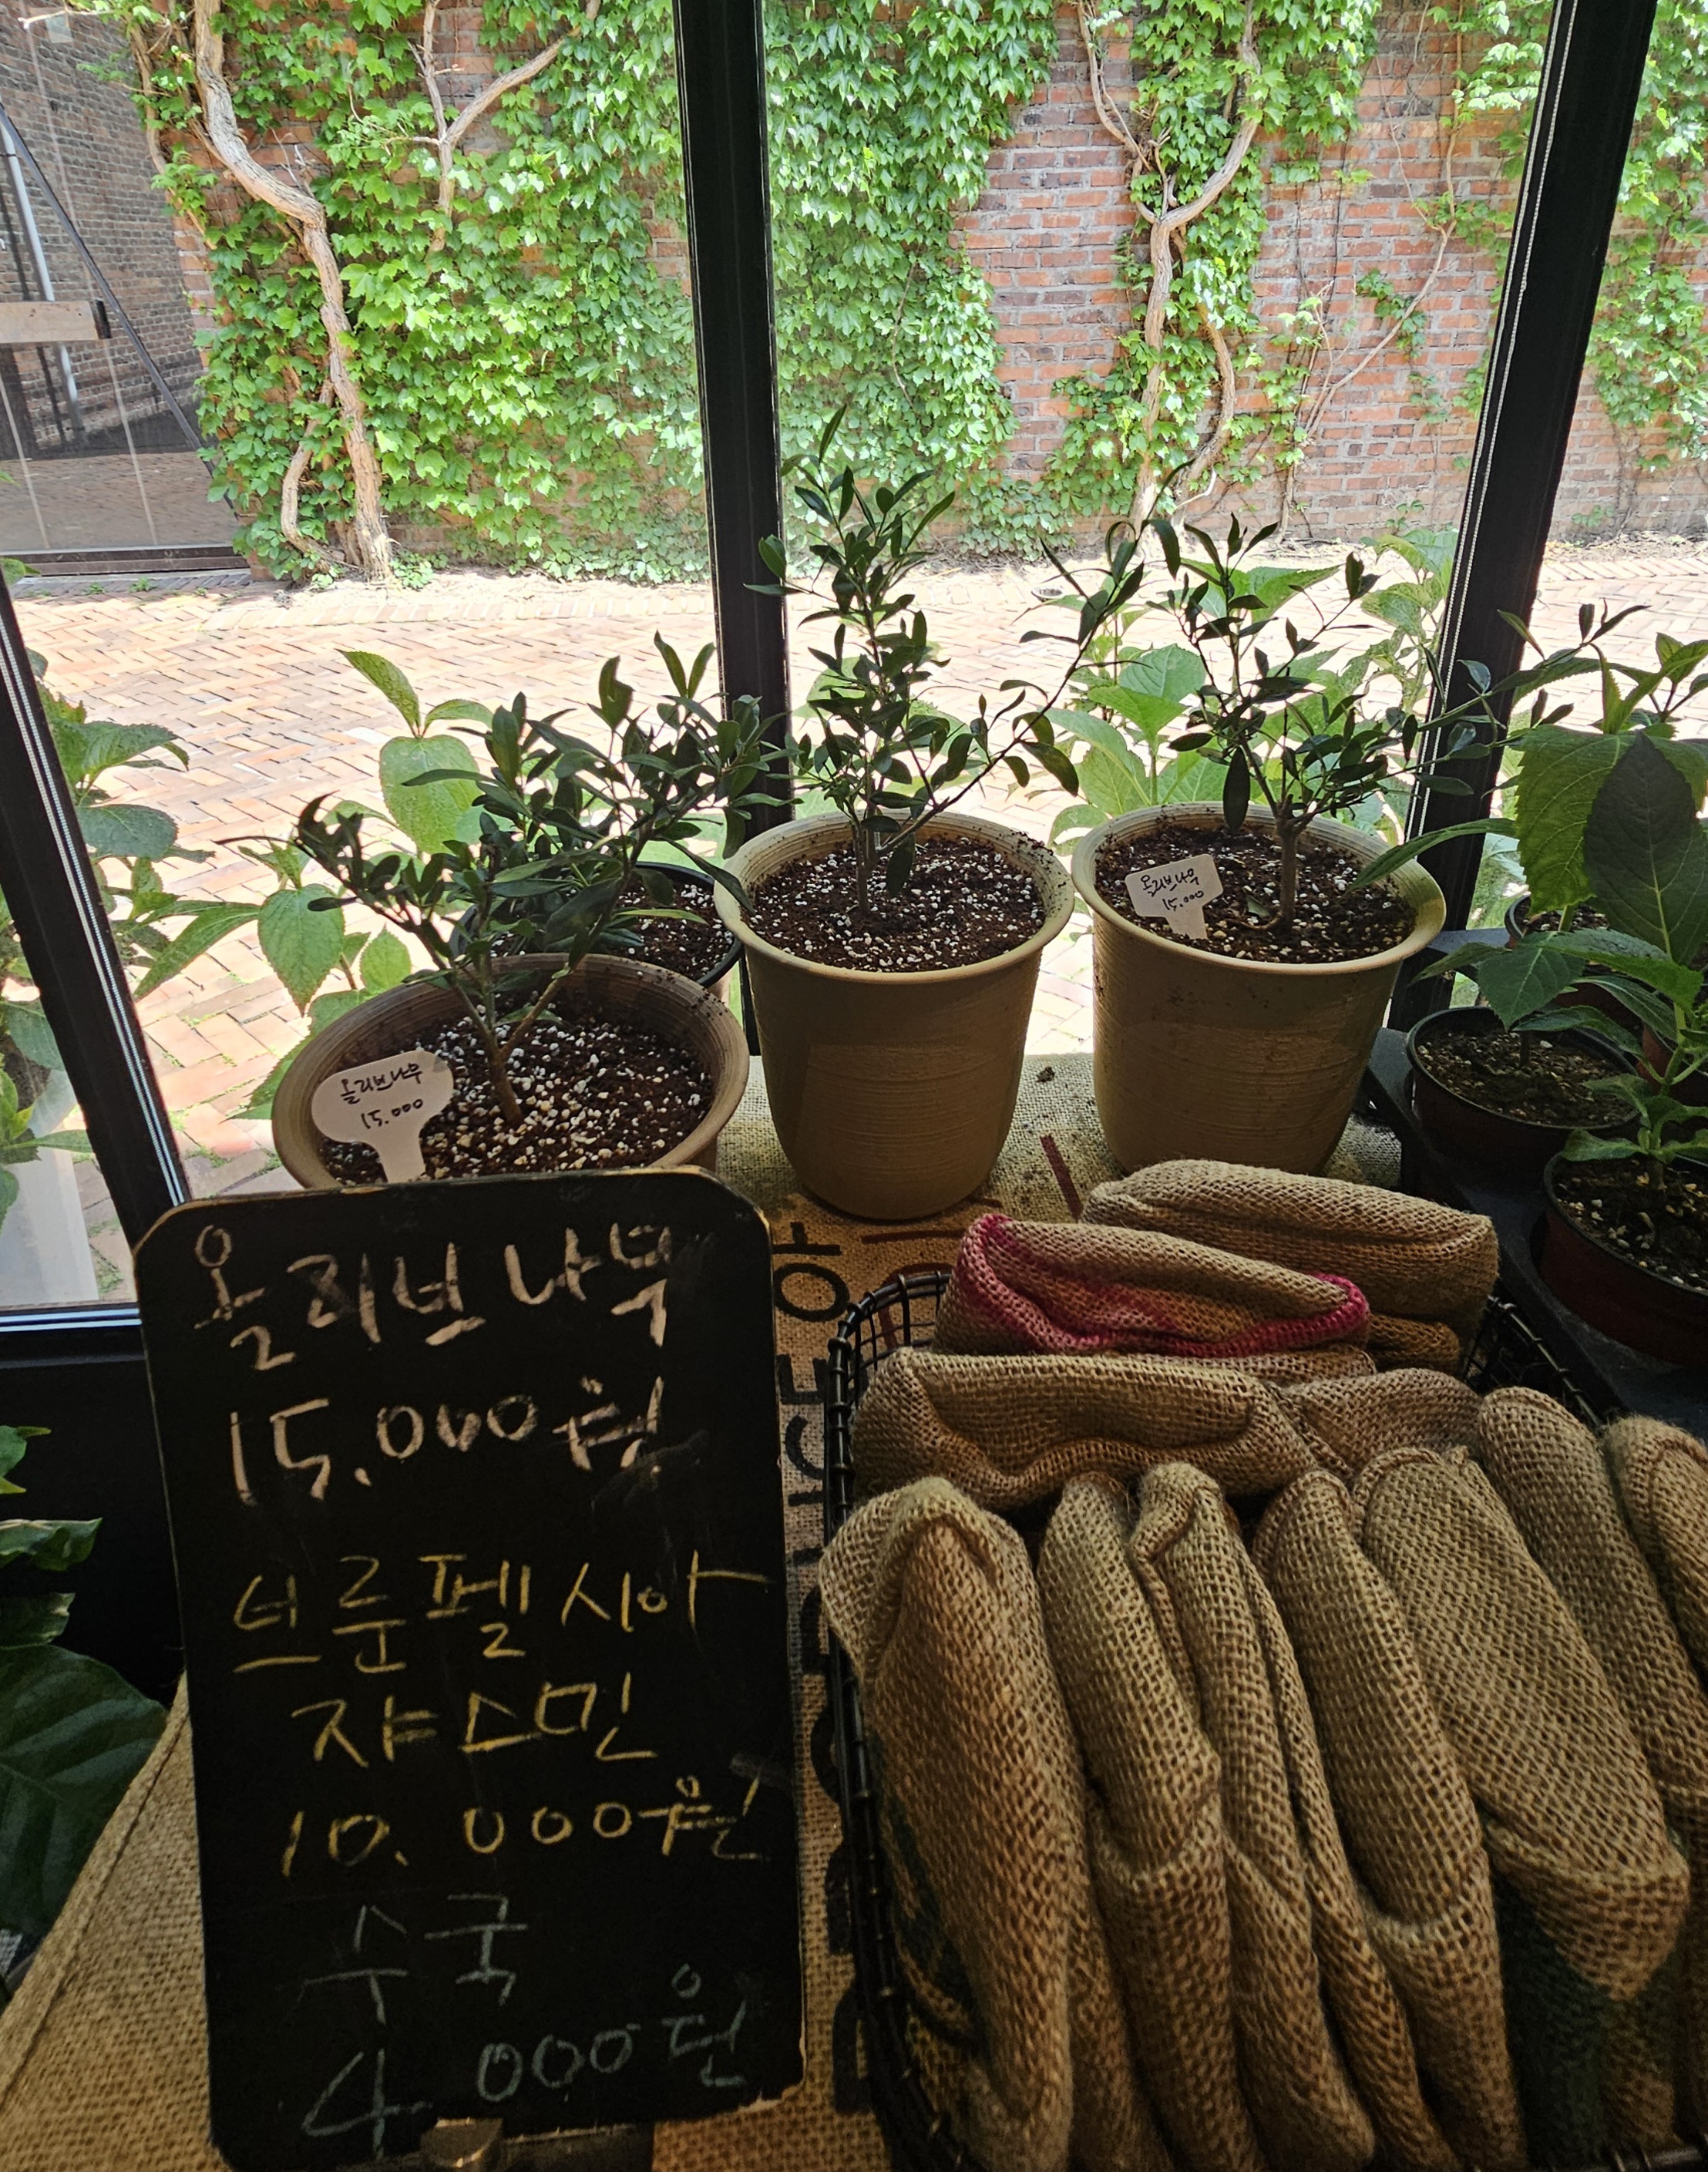 올리브나무
15.000
올리브나무
15.000
올리브나무
15.000원
브룬펠시아
쟈스민
10.000원
수국
4.000원